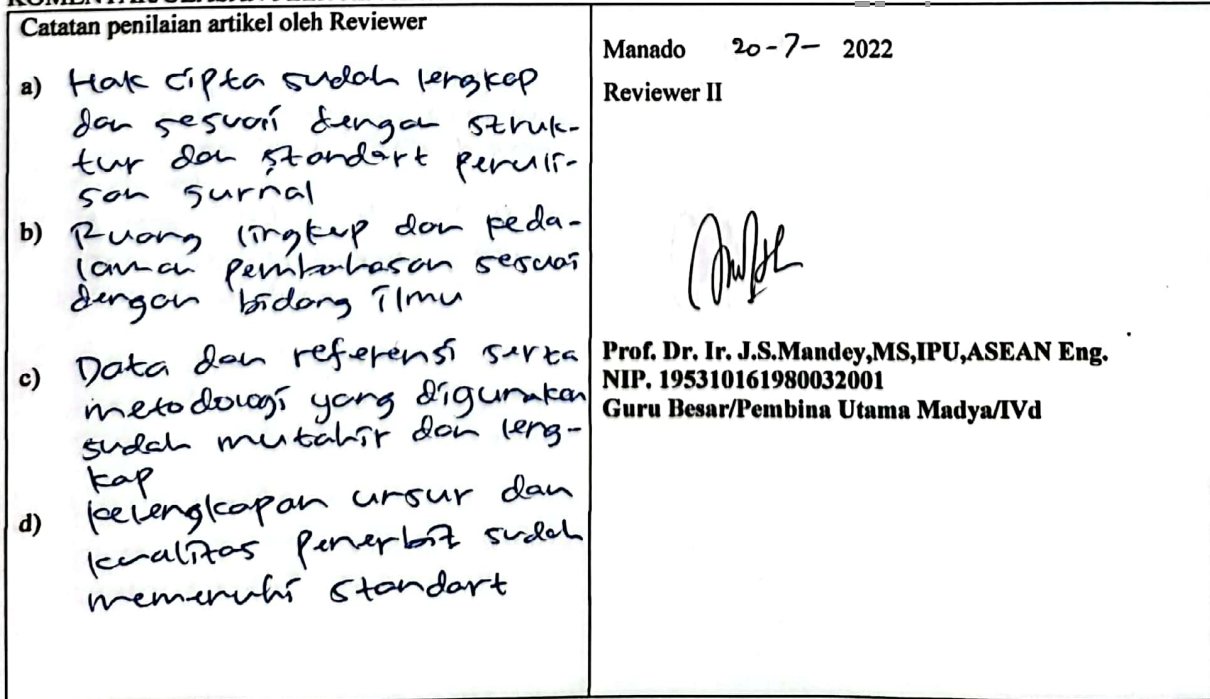 Catatan penilaian artikel oleh Reviewer
a) Hak cipta sudah lengkap
dan sesuai dengan struk-
tur dan standart penuli-
san jurnal
b) Ruang lingkup dan keda-
laman pembahasan sesuai
dengan bidang ilmu
c) Data dan referensi serta
metodologi yang digunakan
sudah mutahir dan leng-
kap
d) kelengkapan unsur dan
kualitas penerbit sudah
memenuhi standart
Manado 20-7- 2022
Reviewer II
Prof. Dr. Ir. J.S.Mandey,MS,IPU,ASEAN Eng.
NIP. 195310161980032001
Guru Besar/Pembina Utama Madya/IVd